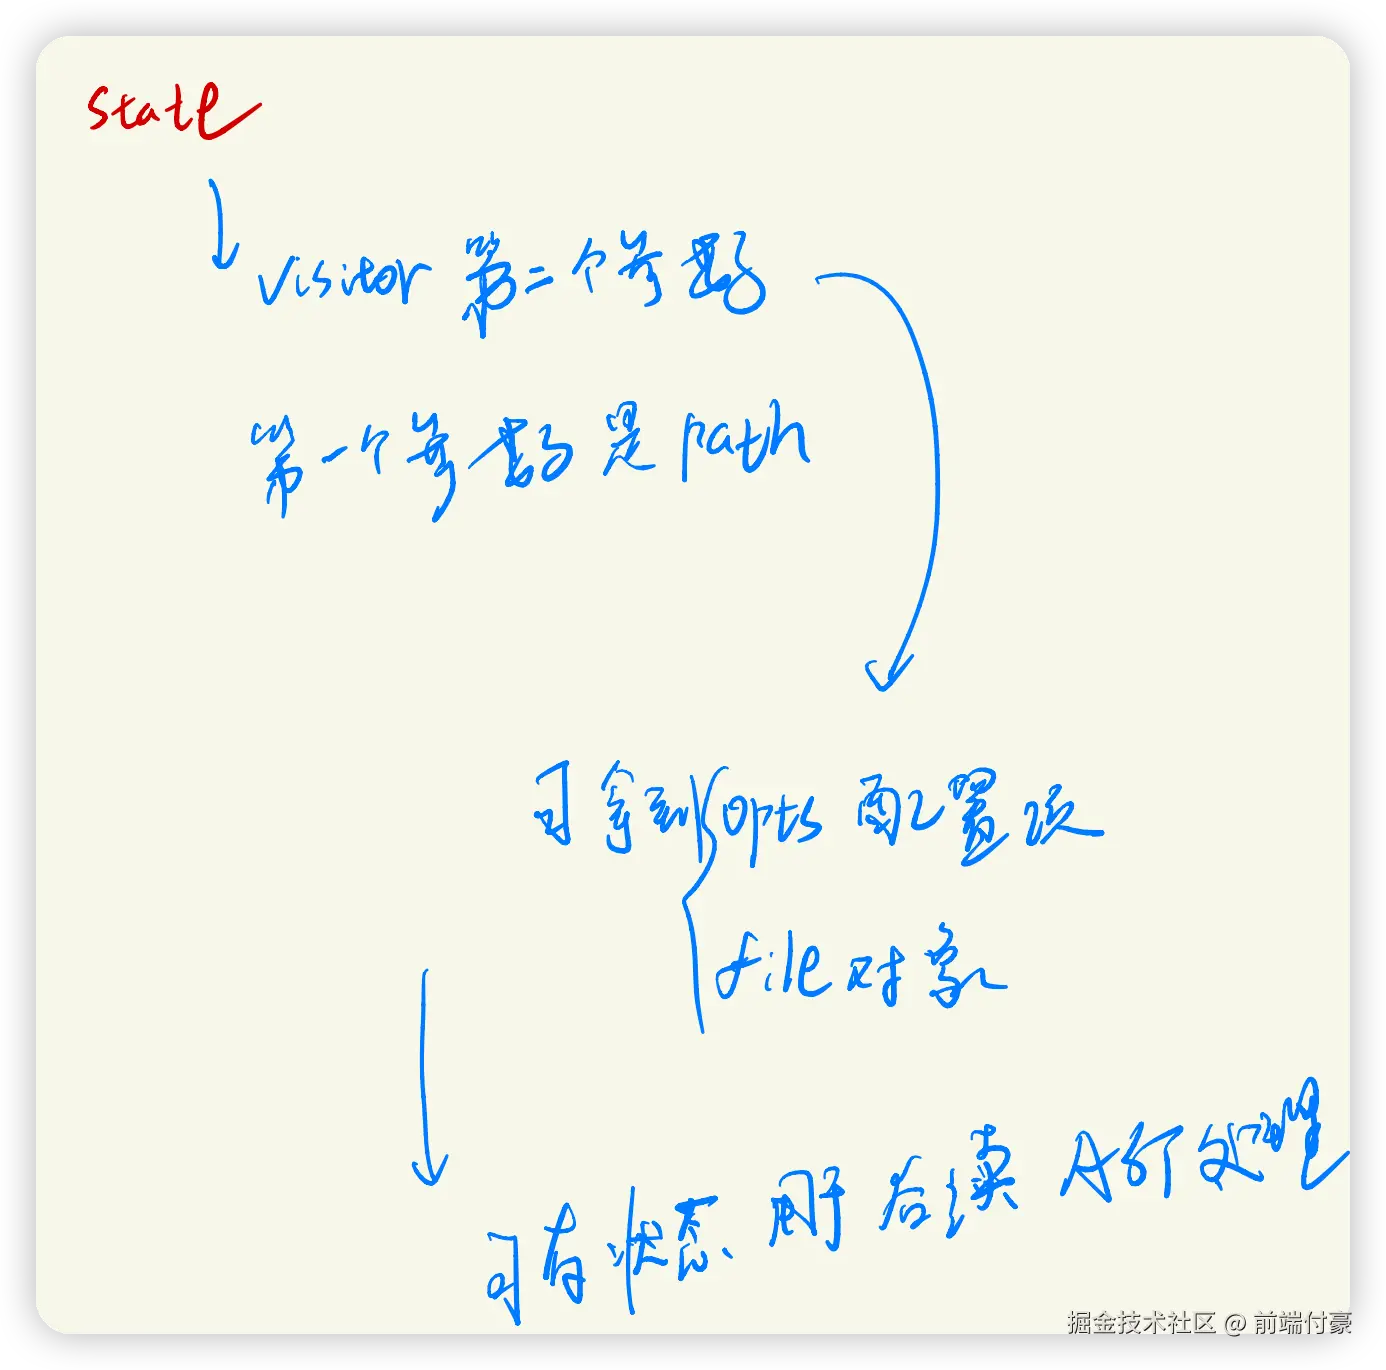 state
visitor 第二个参数
第一个参数是 path
可拿到 opts 配置项
file 对象
可有状态 用于 后续 AST 处理
掘金技术社区 @ 前端付豪